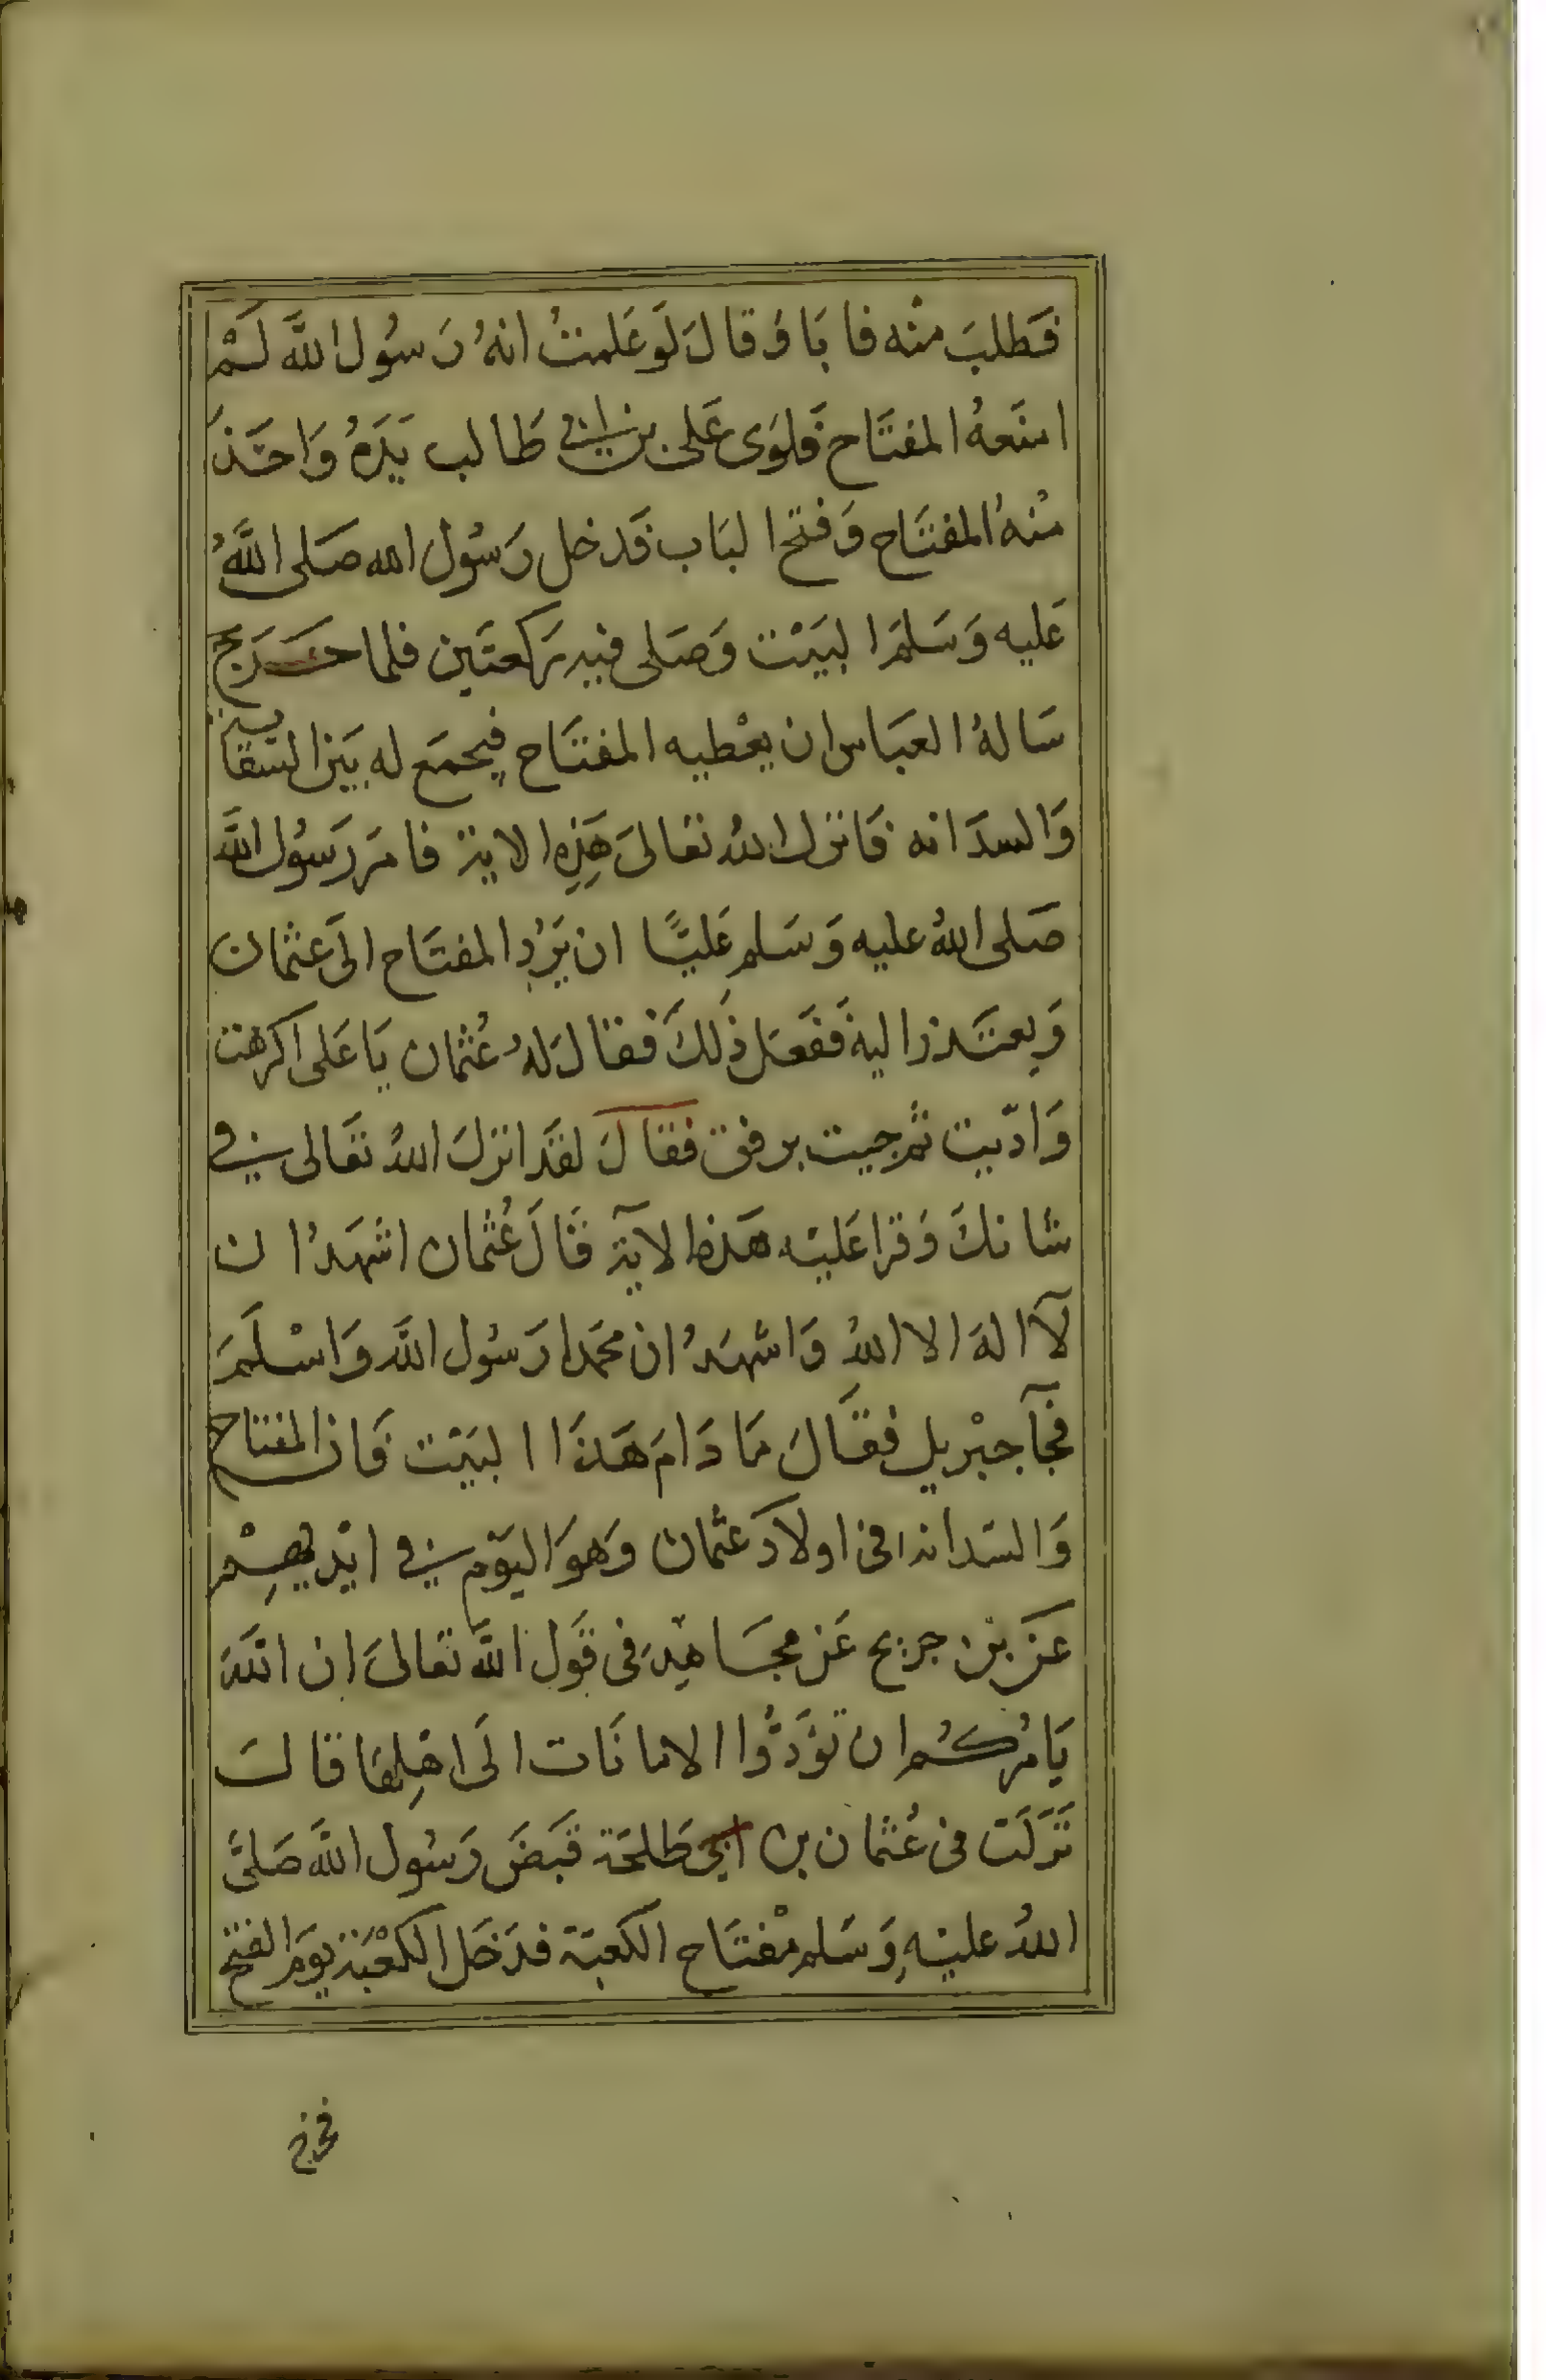 فَطلبَ منْه فابَا وَقالَ لَو عَلمتُ انهُ رَسُول اللَّه لَمْ
امنَعهُ المفتَاح فَلوَى عَلى بن ابى طَالب يَدَهُ وَاخَذ
منْهُ المفتَاح وَفتح البَاب فَدخل رَسُول الله صَلى اللَّهُ
عَليه وَسَلمَ البَيْت وَصَلى فيه ركعتَين فلما خَرَج
سَالهُ العبَاس ان يعْطيه المفتَاح فيجمَع له بَيَن السقاية
وَالسدَانه فَانزل اللهُ تعَالىَ هَذِهِ الاية فامَر رَسُول اللَّه
صَلى اللهُ عليه وَسَلم عَليًّا ان يَرُد المفتَاح الىَ عثمان
وَيعتَذر اليه فَفعَل ذَلكَ فقالَ لهُ عُثمان يَا عَلى اكرهت
وَادّيت ثم جيت برفق فقالَ لقَد انزلَ اللهُ تعَالى فى
شانكَ وَقرا عَليْه هَذه الآية فَقالَ عُثمان اشهَدُ ان
لآ الهَ الا اللهُ وَاشهَدُ ان محَمدا رَسُول اللَّه وَاسْلَمَ
فجآ جبْريل فقَالَ مَا دَامَ هَذَا البَيْت فَان المفتاح
وَالسَدانه فى اولادَ عثمان وَهوَ اليَوْم فى ايْديهِمْ
عَن بن جريح عَن مجَاهِد فى قَول اللَّه تعَالىَ ان اللَّهَ
يَامُركُم ان تؤَدُّوا الامانَات الَى اهْلِهَا قالَ
نَزَلَت فى عُثمان بن ابى طَلحَة قبَضَ رَسُول اللَّه صَلىَّ
اللهُ عليْهِ وَسَلم مفْتَاح الكعبَة فدَخَل الكَعْبَة يوَم الفتح
فخرج